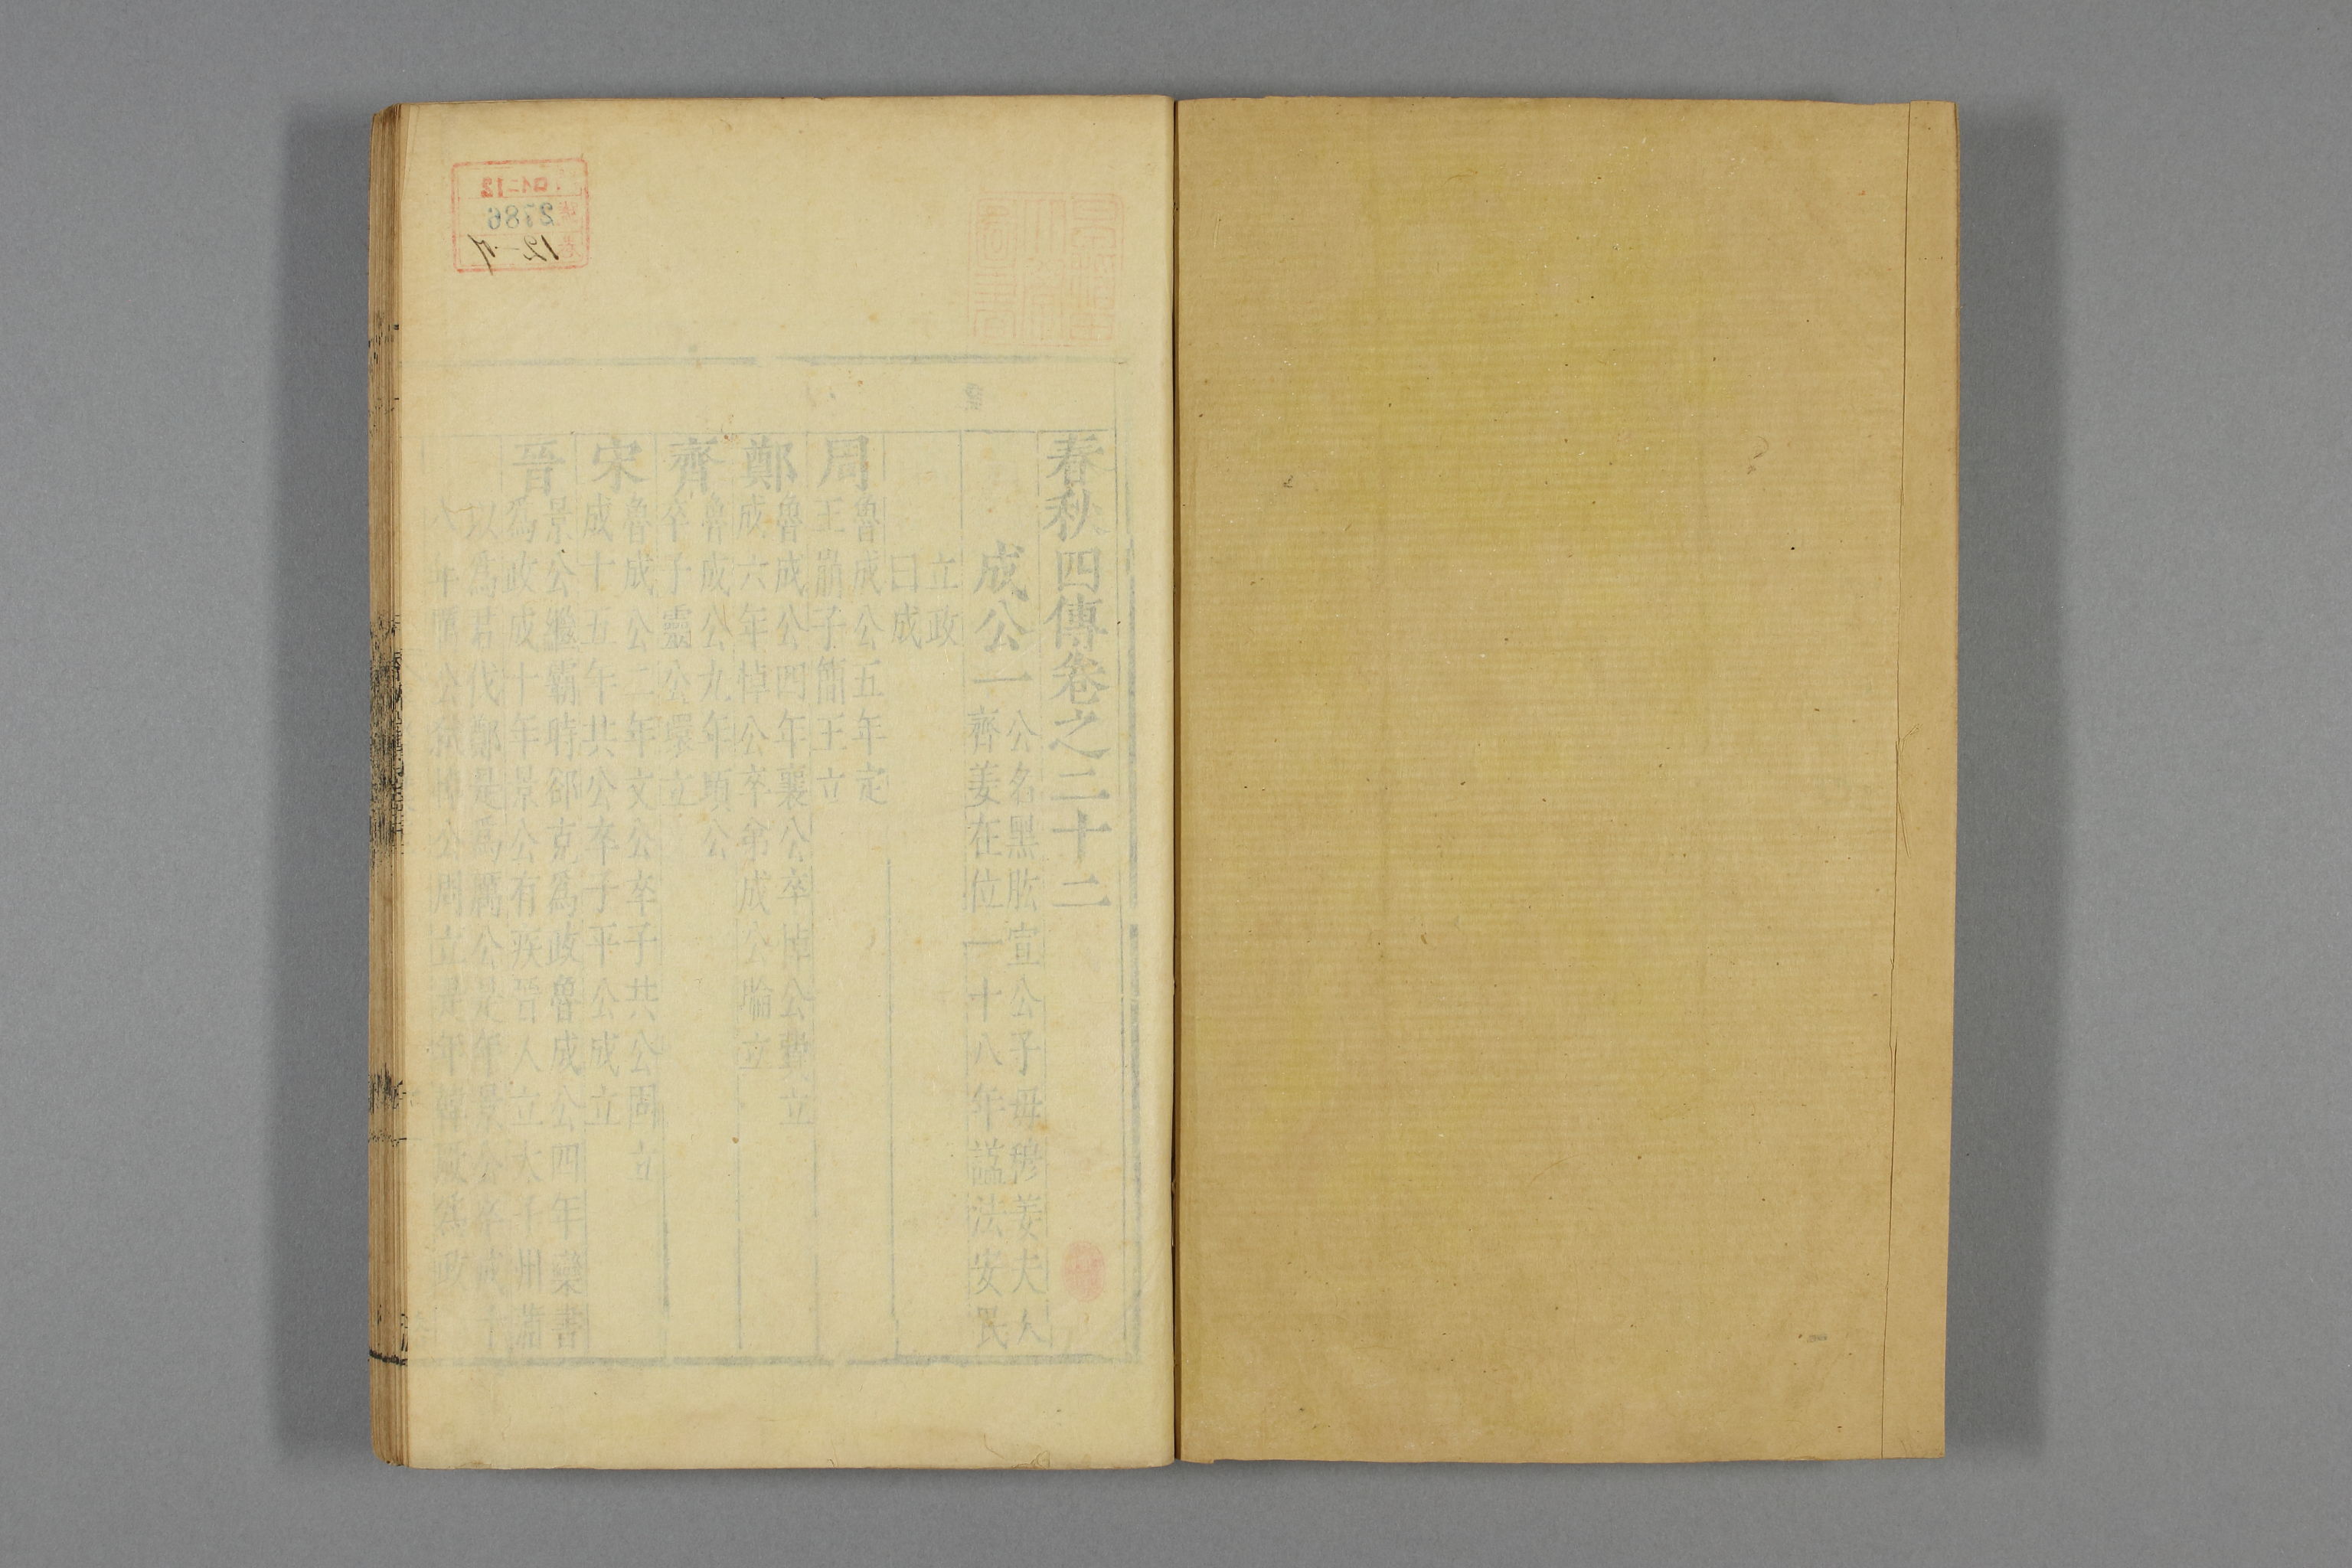 春秋四傳卷之二十二
成公一
公名黑肱宣公子母穆姜夫人
齊姜在位一十八年謚法安民
立政
曰成
周
魯成公五年定
王崩子簡王立
鄭
魯成公四年襄公卒悼公費立
成六年悼公卒弟成公睔立
齊
魯成公九年頃公
卒子靈公環立
宋
魯成公二年文公卒子共公固立
成十五年共公卒子平公成立
晉
景公繼霸時郤克爲政魯成公四年欒書
爲政成十年景公有疾晉人立太子州蒲
以爲君伐鄭是爲厲公是年景公卒成十
八年厲公弑悼公周立是年韓厥爲政
01-12
2786
12-7